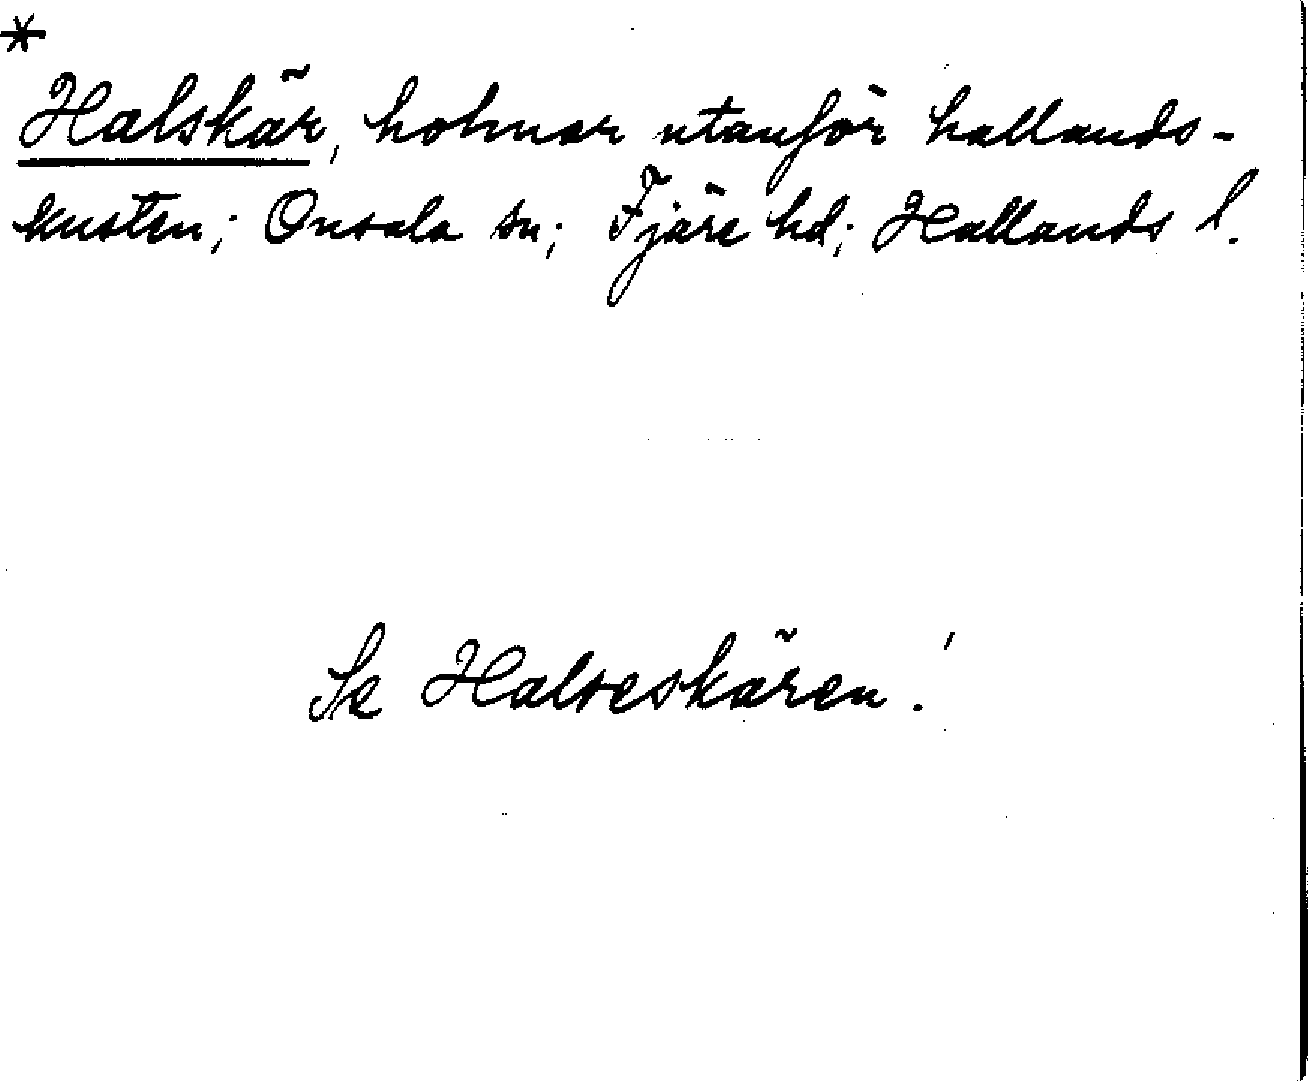 *
Halskär, holmar utanför hallands-
kusten; Onsala sn; Fjäre hd; Hallands l.
Se Halseskären!